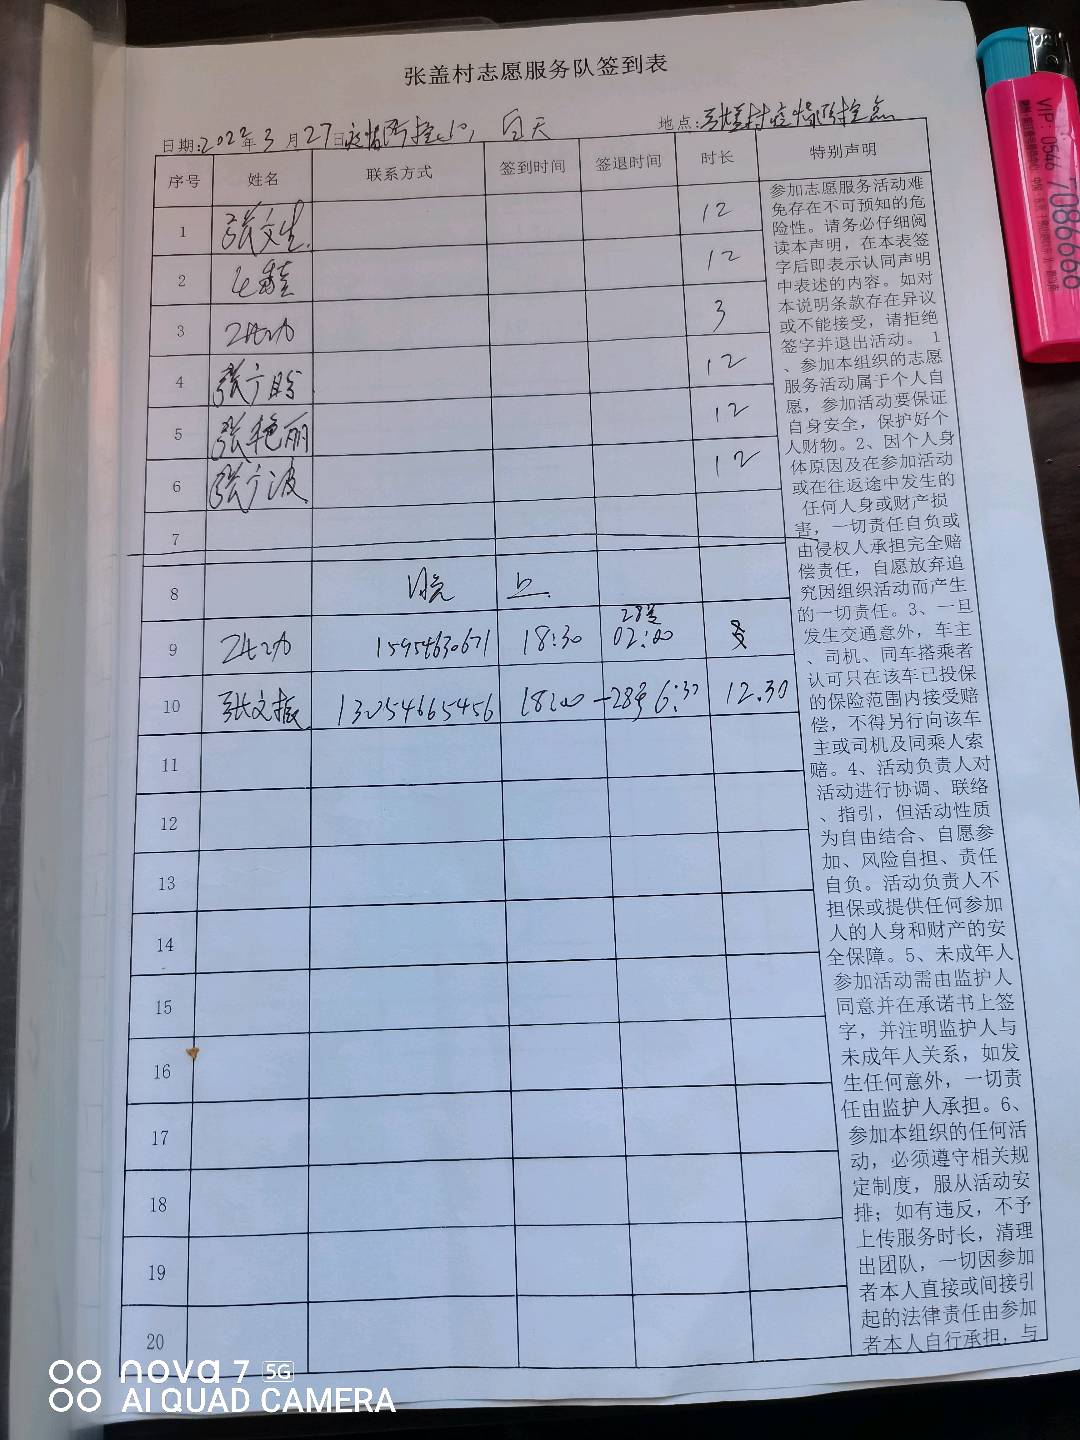 张盖村志愿服务队签到表
日期:2022年3月27日疫情防控, 白天
地点:张盖村疫情防控点
序号 姓名 联系方式 签到时间 签退时间 时长 特别声明
1 张文生 12
2 12
3 3
4 张广盼 12
5 张艳丽 12
6 张广波 12
7
8 晚 上
9 15954630671 18:30 28号 02:00
10 张文振 13054665456 18:00 — 28号 6:30 12.30
11
12
13
14
15
16
17
18
19
20
参加志愿服务活动难
免存在不可预知的危
险性。请务必仔细阅
读本声明，在本表签
字后即表示认同声明
中表述的内容。如对
本说明条款存在异议
或不能接受，请拒绝
签字并退出活动。 1
、参加本组织的志愿
服务活动属于个人自
愿，参加活动要保证
自身安全，保护好个
人财物。2、因个人身
体原因及在参加活动
或在往返途中发生的
任何人身或财产损
害，一切责任自负或
由侵权人承担完全赔
偿责任，自愿放弃追
究因组织活动而产生
的一切责任。3、一旦
发生交通意外，车主
、司机、同车搭乘者
认可只在该车已投保
的保险范围内接受赔
偿，不得另行向该车
主或司机及同乘人索
赔。4、活动负责人对
活动进行协调、联络
、指引，但活动性质
为自由结合、自愿参
加、风险自担、责任
自负。活动负责人不
担保或提供任何参加
人的人身和财产的安
全保障。5、未成年人
参加活动需由监护人
同意并在承诺书上签
字，并注明监护人与
未成年人关系，如发
生任何意外，一切责
任由监护人承担。6、
参加本组织的任何活
动，必须遵守相关规
定制度，服从活动安
排；如有违反，不予
上传服务时长，清理
出团队，一切因参加
者本人直接或间接引
起的法律责任由参加
者本人自行承担，与
VIP: 0546
7086666
nova 7 5G
AI QUAD CAMERA